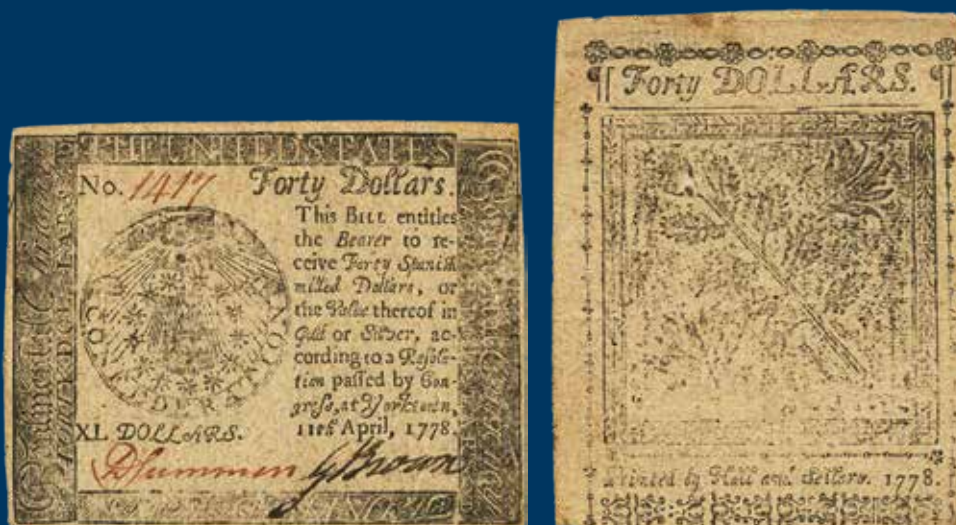 THE UNITED STATES
No. 1417 Forty Dollars.
This BILL entitles
the Bearer to re-
ceive Forty Spanish
milled Dollars, or
the Value thereof in
Gold or Silver, ac-
cording to a Resolu-
tion passed by Con-
gress, at Yorktown,
11th April, 1778.
CONFEDERATION
XL DOLLARS.
G Brown
FORTY DOLLARS
Forty DOLLARS.
Printed by Hall and Sellers. 1778.